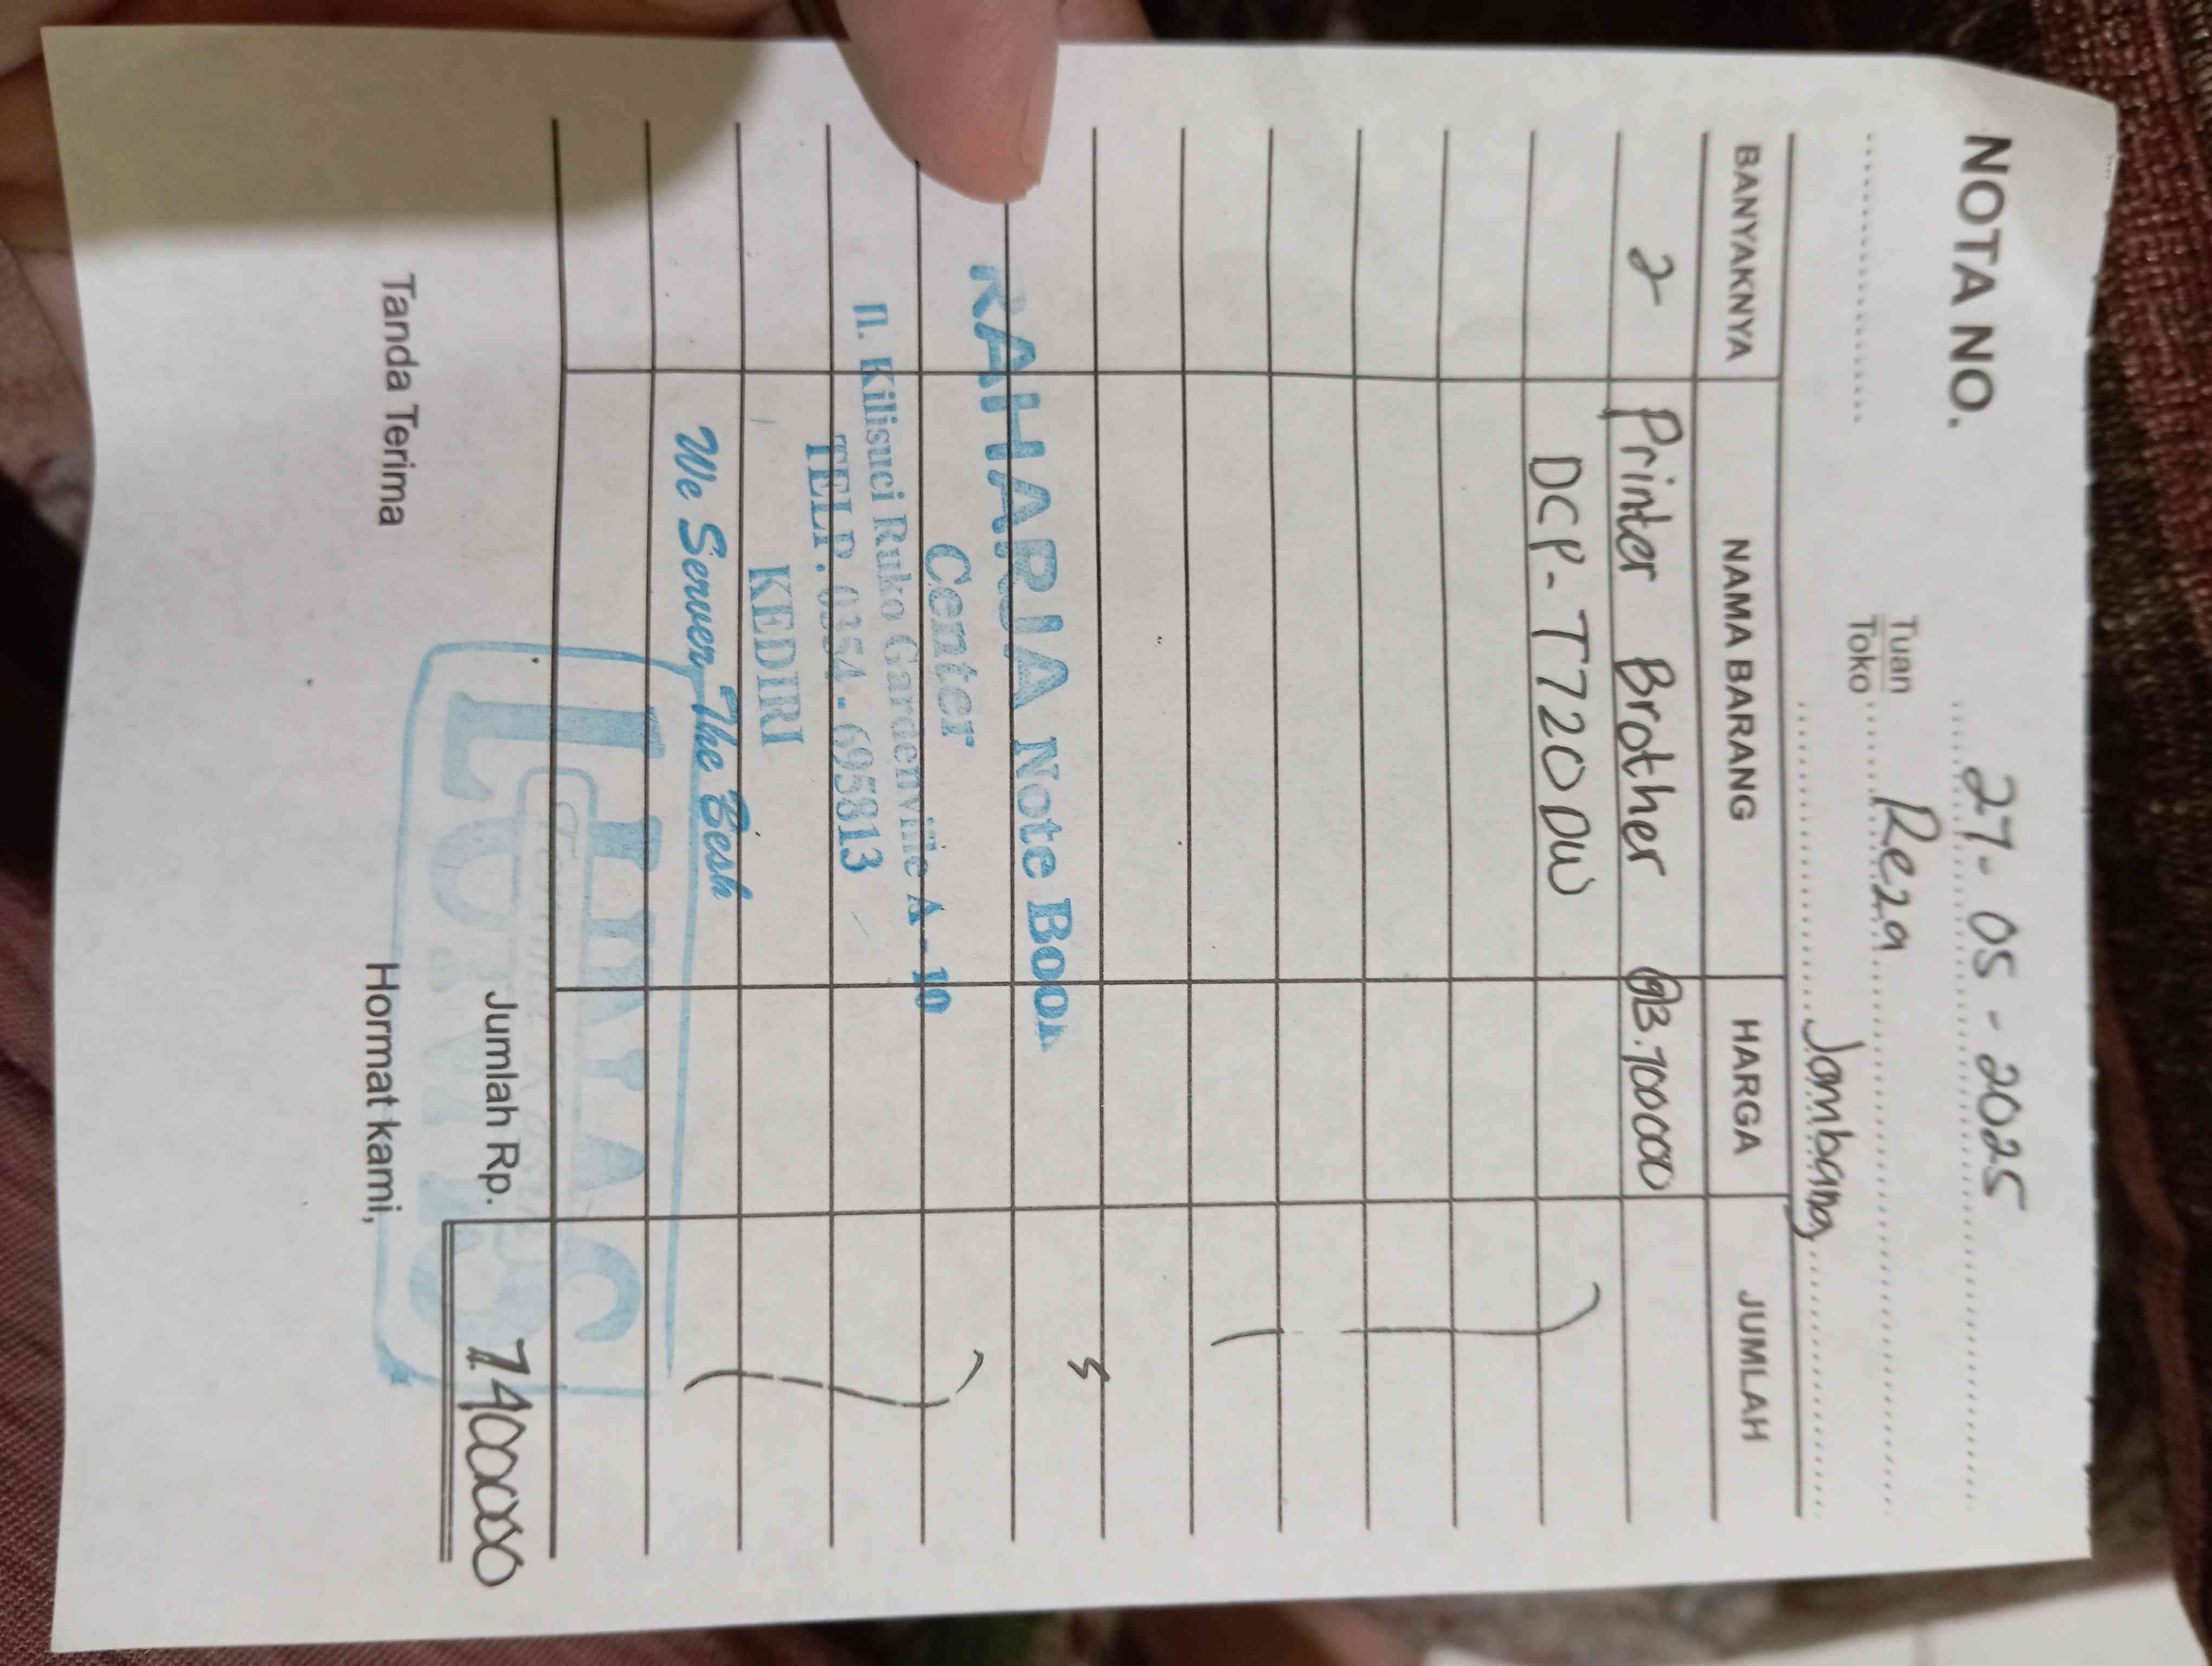 NOTA NO.
27-05-2025
Tuan
Toko
Reza
Jombang
BANYAKNYA NAMA BARANG HARGA JUMLAH
2 Printer Brother @3.700000
DCP-T720DW
RAHARJA Note Book
Center
Jl. Kilisuci Ruko Gardenville A - 10
TELP. 0354 - 695813
KEDIRI
We Server The Besh
LUNAS
Jumlah Rp. 7400000
Tanda Terima Hormat kami,